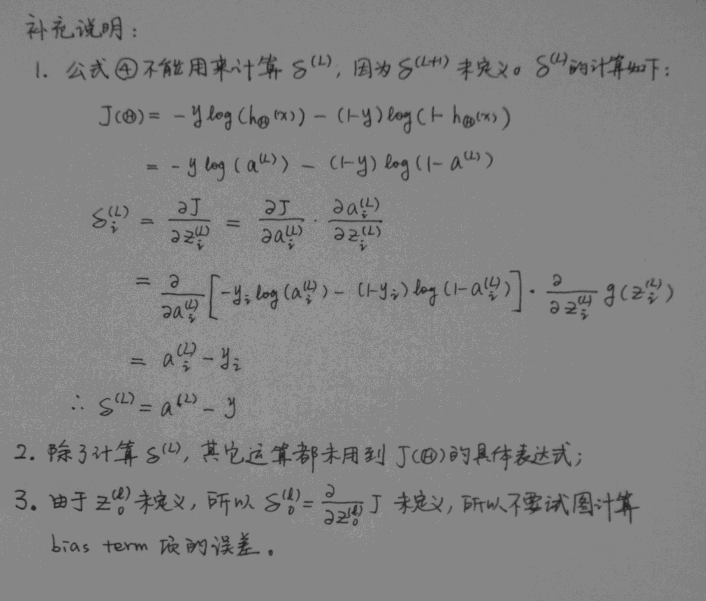 补充说明：
1. 公式④不能用来计算 δ^(L)，因为 δ^(L+1) 未定义。δ^(L)的计算如下：
J(Θ) = -y log(h_Θ(x)) - (1-y) log(1- h_Θ(x))
= -y log(a^(L)) - (1-y) log(1-a^(L))
δ_i^(L) = ∂J/∂z_i^(L) = ∂J/∂a_i^(L) · ∂a_i^(L)/∂z_i^(L)
= ∂/∂a_i^(L) [-y_i log(a_i^(L)) - (1-y_i) log(1-a_i^(L))] · ∂/∂z_i^(L) g(z_i^(L))
= a_i^(L) - y_i
∴ δ^(L) = a^(L) - y
2. 除了计算 δ^(L)，其它运算都未用到 J(Θ)的具体表达式；
3. 由于 z_0^(l) 未定义，所以 δ_0^(l) = ∂/∂z_0^(l) J 未定义，所以不要试图计算
bias term 项的误差。